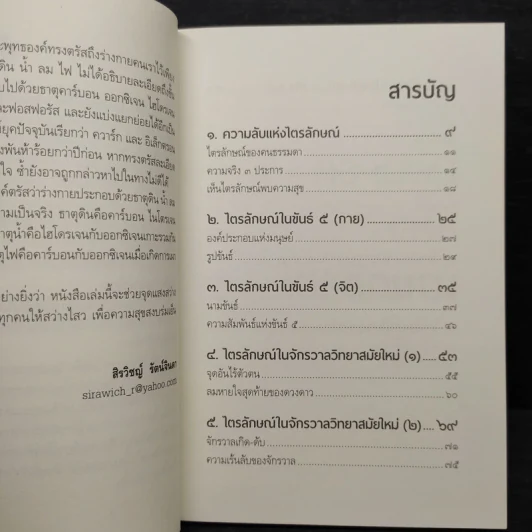 ะพุทธองค์ทรงตรัสถึงร่างกายคนเราไว้เพียง
ดิน น้ำ ลม ไฟ ไม่ได้อธิบายละเอียดถึงขั้น
บไปด้วยธาตุคาร์บอน ออกซิเจน ไฮโดรเจน
ละฟอสฟอรัส และยังแบ่งแยกย่อยได้อีกเป็น
ยุคปัจจุบันเรียกว่า ควาร์ก และ อิเล็กตรอน
งพันห้าร้อยกว่าปีก่อน หากทรงตรัสละเอียด
ใจ ซ้ำยังอาจถูกกล่าวหาไปในทางไม่ดีได้
ค์ตรัสว่าร่างกายประกอบด้วยธาตุดิน น้ำ ลม
ามเป็นจริง ธาตุดินคือคาร์บอน ไนโตรเจน
าตุน้ำคือไฮโดรเจนกับออกซิเจนเกาะรวมกัน
ตุไฟคือคาร์บอนกับออกซิเจนเมื่อเกิดการเผา
ย่างยิ่งว่า หนังสือเล่มนี้จะช่วยจุดแสงสว่าง
ทุกคนให้สว่างไสว เพื่อความสุขสงบร่มเย็น
สิรวิชญ์ รัตน์จินดา
sirawich_r@yahoo.com
สารบัญ
๑. ความลับแห่งไตรลักษณ์ ๙
ไตรลักษณ์ของคนธรรมดา ๑๑
ความจริง ๓ ประการ ๑๔
เห็นไตรลักษณ์พบความสุข ๑๘
๒. ไตรลักษณ์ในขันธ์ ๕ (กาย) ๒๕
องค์ประกอบแห่งมนุษย์ ๒๗
รูปขันธ์ ๒๙
๓. ไตรลักษณ์ในขันธ์ ๕ (จิต) ๓๕
นามขันธ์ ๓๗
ความสัมพันธ์แห่งขันธ์ ๕ ๔๖
๔. ไตรลักษณ์ในจักรวาลวิทยาสมัยใหม่ (๑) ๕๓
จุดอันไร้ตัวตน ๕๕
ลมหายใจสุดท้ายของดวงดาว ๖๐
๕. ไตรลักษณ์ในจักรวาลวิทยาสมัยใหม่ (๒) ๖๙
จักรวาลเกิด-ดับ ๗๑
ความเร้นลับของจักรวาล ๗๕